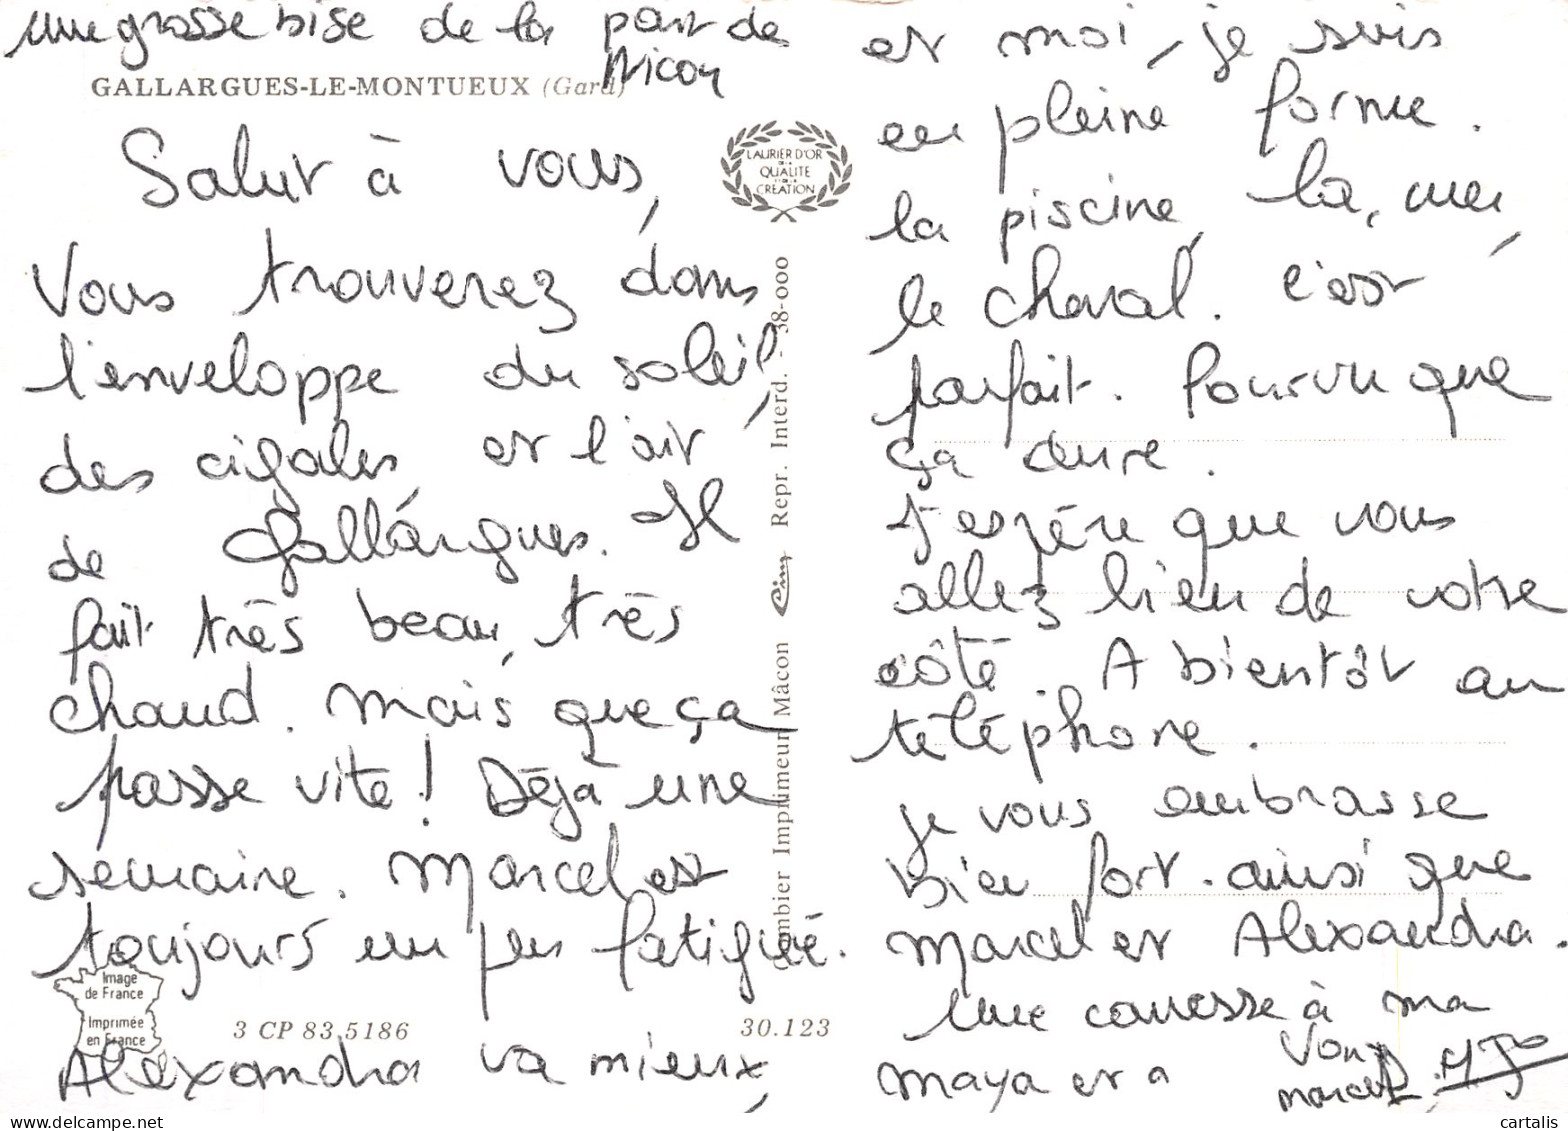 une grosse bise de la part de
Nicou
GALLARGUES-LE-MONTUEUX (Gard)
Salut à vous,
Vous trouverez dans
l'enveloppe du soleil,
des cigales, et l'air
de Gallargues. Il
fait très beau, très
chaud. Mais que ça
passe vite! Déjà une
semaine. Marcel est
toujours un peu fatigué.
Alexandra va mieux,
Image
de France
Imprimée
en France
3 CP 83,5186
30.123
LAURIER D'OR
DE LA
QUALITÉ
ET DE LA
CRÉATION
Combier Imprimeur Mâcon Cim Repr. Interd. - 38-000
et moi, je suis
en pleine forme.
la piscine, la, mer,
le cheval. c'est
parfait. Pourvu que
ça dure.
J'espère que vous
allez bien de votre
côté. A bientôt au
téléphone.
je vous embrasse
bien fort. ainsi que
Marcel et Alexandra.
Une caresse à ma
maya et a
Marcel